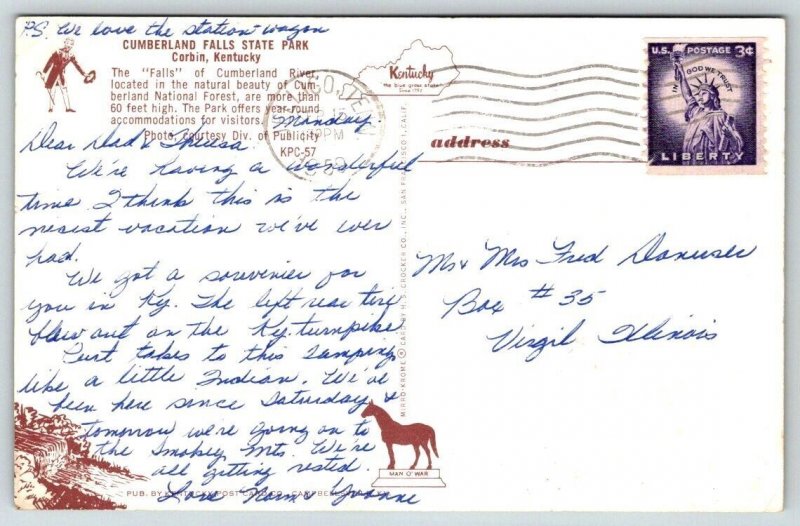 P.S. We love the station wagon
CUMBERLAND FALLS STATE PARK
Corbin, Kentucky
The "Falls" of Cumberland River,
located in the natural beauty of Cum-
berland National Forest, are more than
60 feet high. The Park offers year-round
accommodations for visitors.
Photo, Courtesy Div. of Publicity
KPC-57
Monday
Dear Dad & Thelsa
We're having a wonderful
time I think this is the
nicest vacation we've ever
had.
We got a souvenier for
you in Ky. The left rear tire
blew out on the Ky. turnpike
Curt takes to this camping
like a little Indian. We've
been here since Saturday &
tomorrow we're going on to
the Smokey Mts. We're
all getting rested.
Love Norm & Yvonne
PUB. BY KENTUCKY POST CARD CO., CAMPBELLSVILLE, KY.
Kentucky
the blue grass state
Since 1792
PM
1959
address
U.S. POSTAGE 3¢
IN GOD WE TRUST
LIBERTY
MIRRO-KROME ® CARD BY H. S. CROCKER CO., INC., SAN FRANCISCO 1, CALIF.
MAN O' WAR
Mr & Mrs Fred Danuser
Box # 35
Virgil Illinois